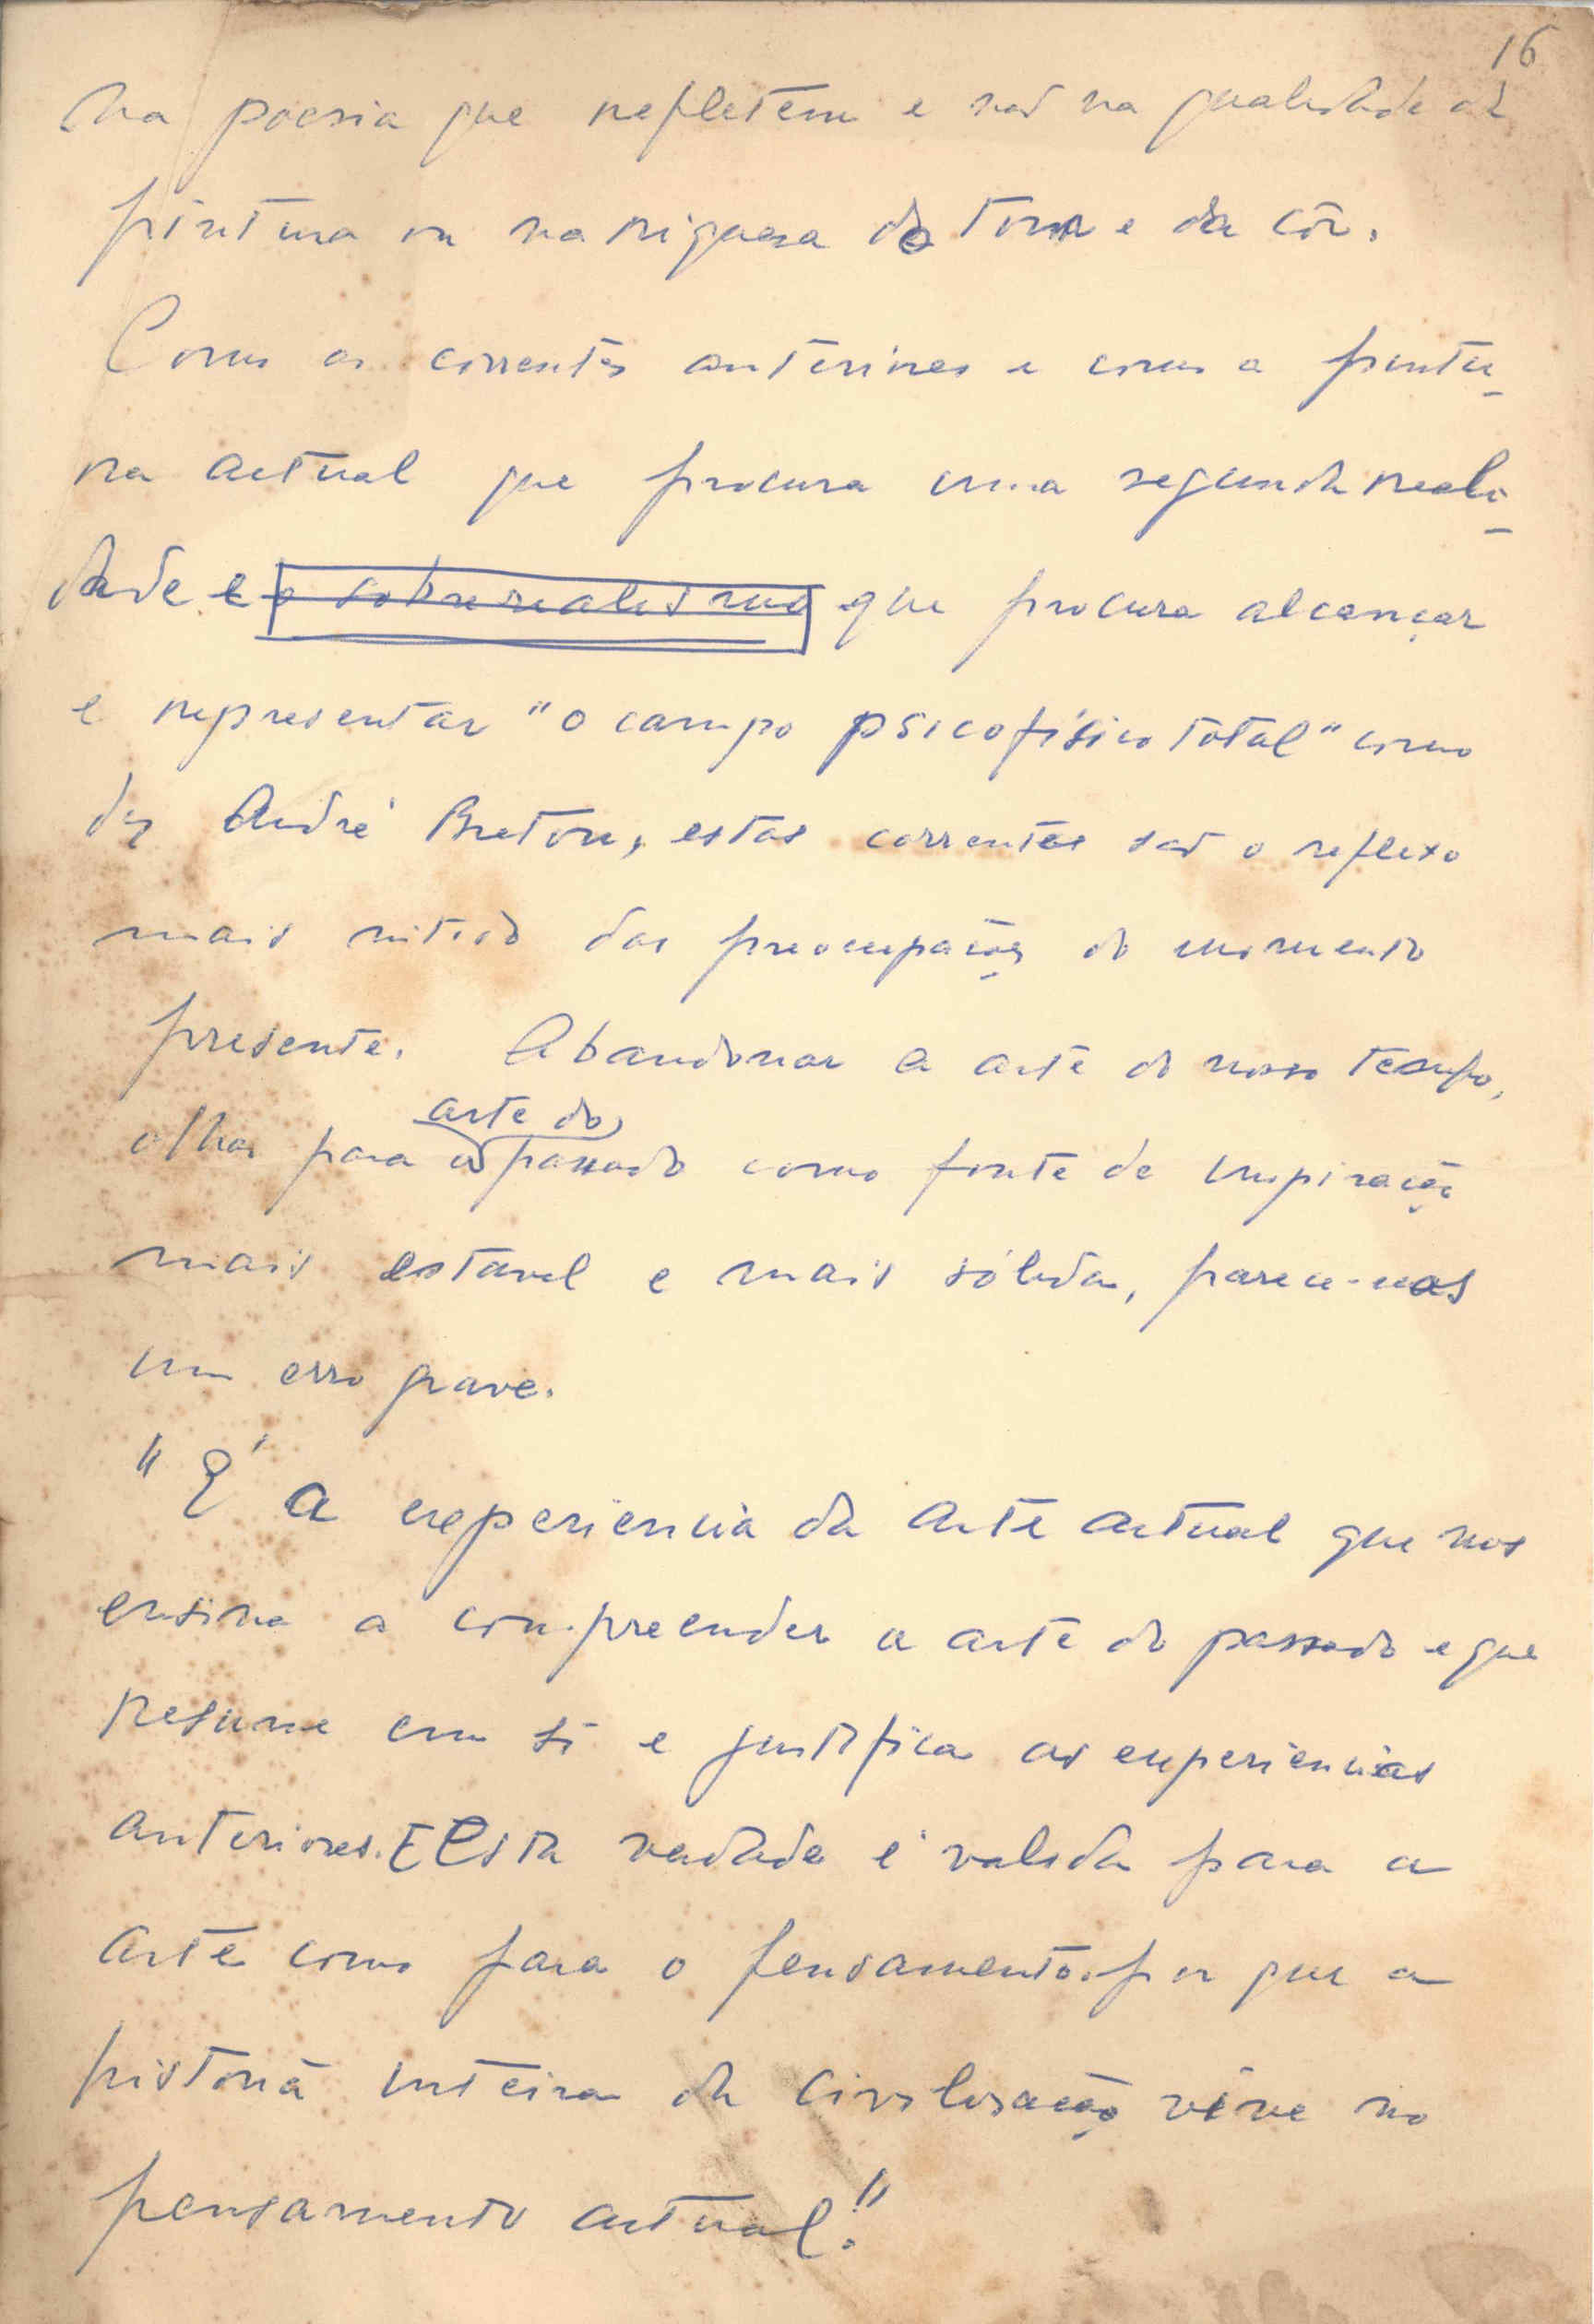 16
na poesia que refletem e não na qualidade da
pintura ou na riquesa do tom e da côr.
Como as correntes anteriores e como a pintu-
ra actual que procura uma segunda reali-
dade e o sobrerealismo que procura alcançar
e representar "o campo psicofísico total" como
diz André Breton, estas correntes são o reflexo
mais nitido das preocupações do momento
presente. Abandonar a arte do nosso tempo,
arte do
olhar para o passado como fonte de inspiração
mais estavel e mais sólida, parece-nos
um erro grave.
"É a experiencia da arte actual que nos
ensina a compreender a arte do passado e que
resume em si e justifica as experiencias
anteriores. Esta verdade é valida para a
arte como para o pensamento. por que a
historia inteira da civilisação vive no
pensamento actual."